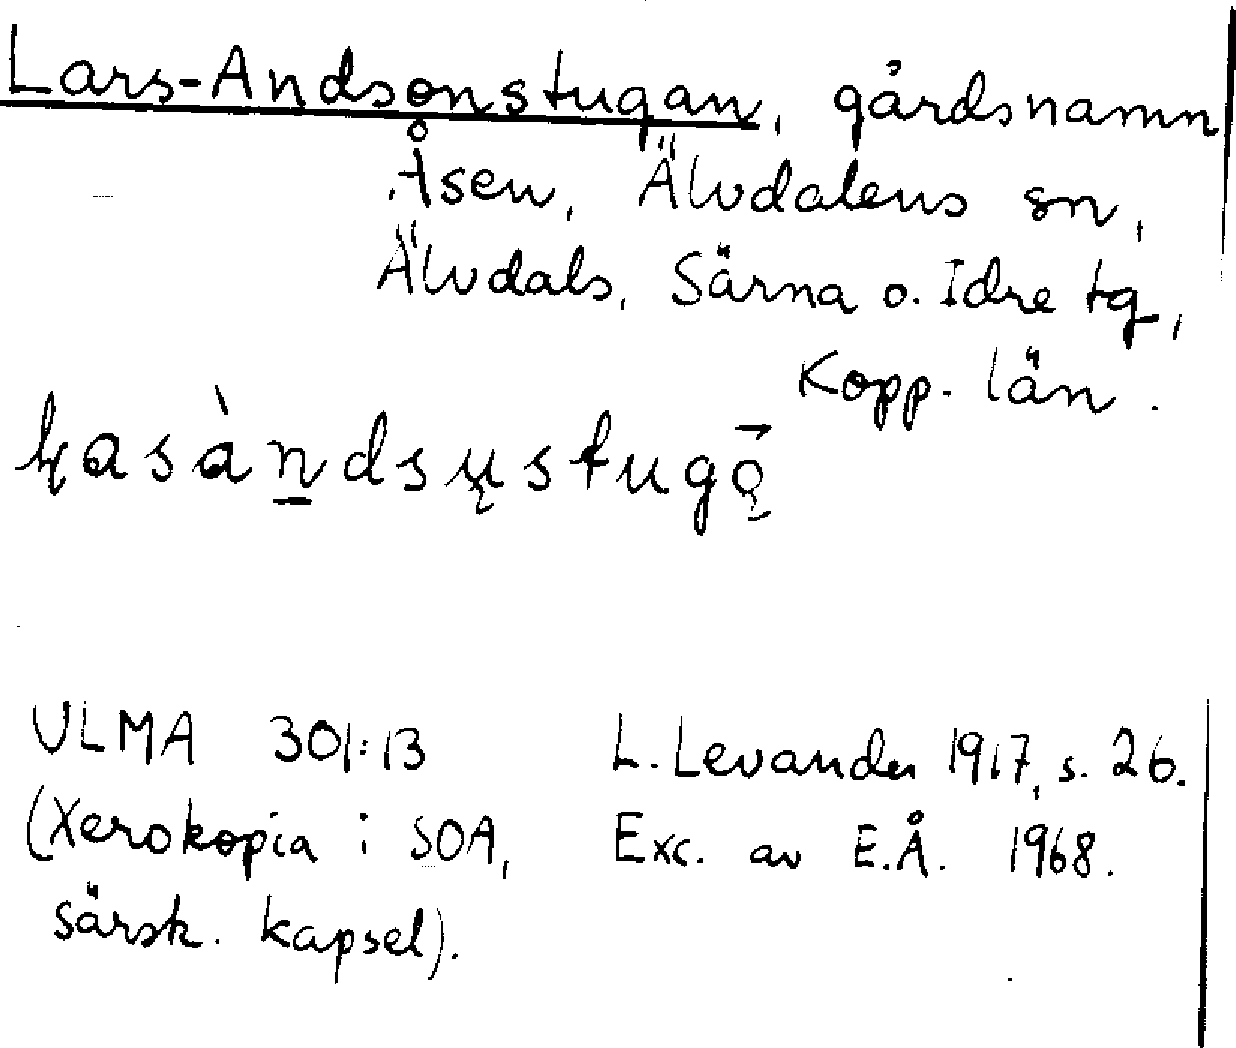 Lars-Andsonstugan, gårdsnamn
Åsen, Älvdalens sn,
Älvdals, Särna o. Idre tg,
Kopp. län.
ULMA 301:13 L. Levander 1917, s. 26.
(Xerokopia i SOA, Exc. av E.Å. 1968.
särsk. kapsel).